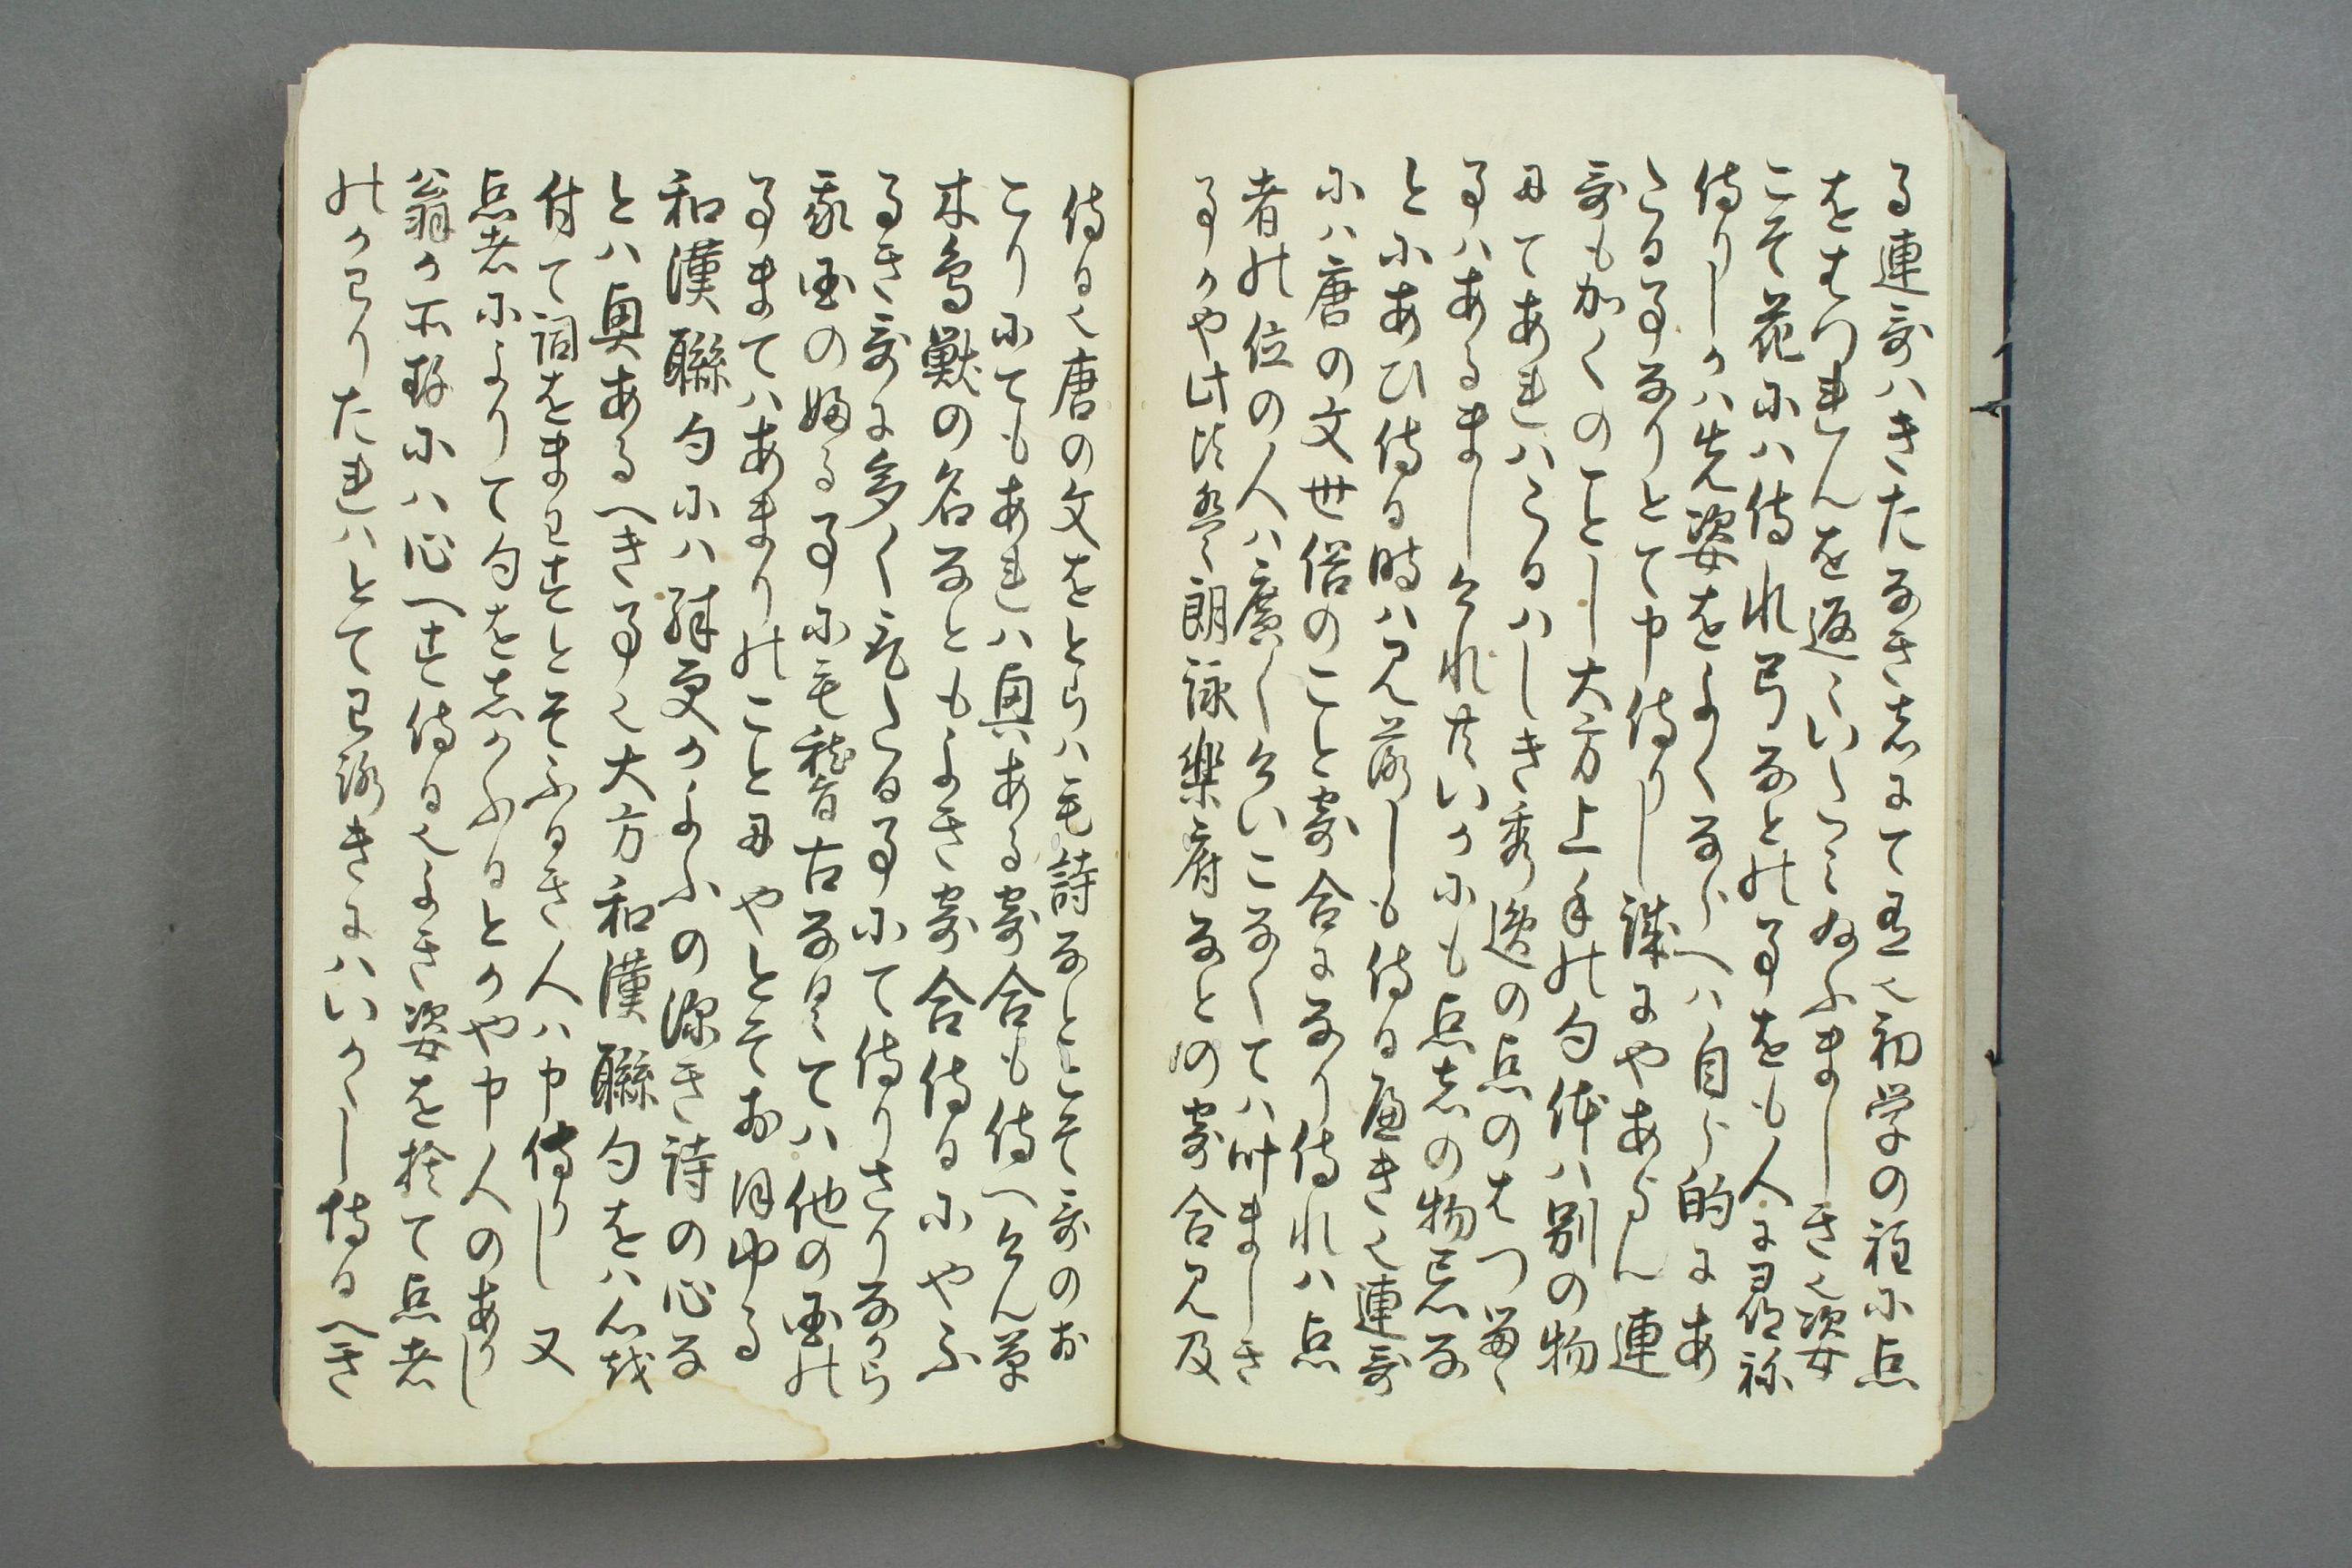 る連哥ハきたなき志にて有也初学の程に点
をはつれんを返々いたミ給ふましき也姿
こそ花にハ侍れ弓なとの事をも人に尋ね
侍りしかハ先姿をよくならへハ自ら的にあ
たる事なりとて申侍りし誠にやあらん連
哥もかくのことし大方上手の句体ハ別の物
にてあれハこるハしき秀逸の点のはつるゝ
事ハあるましけれ共いかにも点者の物忘な
とにあひ侍る時ハ見落しも侍る也連哥
にハ唐の文世俗のこと寄合になり侍れハ点
者の位の人ハ広くけいこなくてハ叶ましき
事かや此比ハ朗詠楽府なとの寄合見及
侍る也唐の文をとらハ毛詩なとこそ哥のお
こりにてもあれハ興ある寄合も侍へけん草
木鳥獣の名なともよき寄合侍るにやふ
るき哥に多く見えたる事にて侍りさりなから
我国の婦る事にも稽古なくてハ他の国の
事まてハあまりのことにやとそおほゆる
和漢聯句にハ殊更かよふの深き詩の心な
とハ興あるへき事也大方和漢聯句をハ心越
付て詞をまハすとそふるき人ハ申侍りし又
点者によりて句を志かふるとかや申人のあり
翁か所存にハ心へす侍る也よき姿を捨て点者
のかハりたれハとてわろきにハいかゝし侍るへき